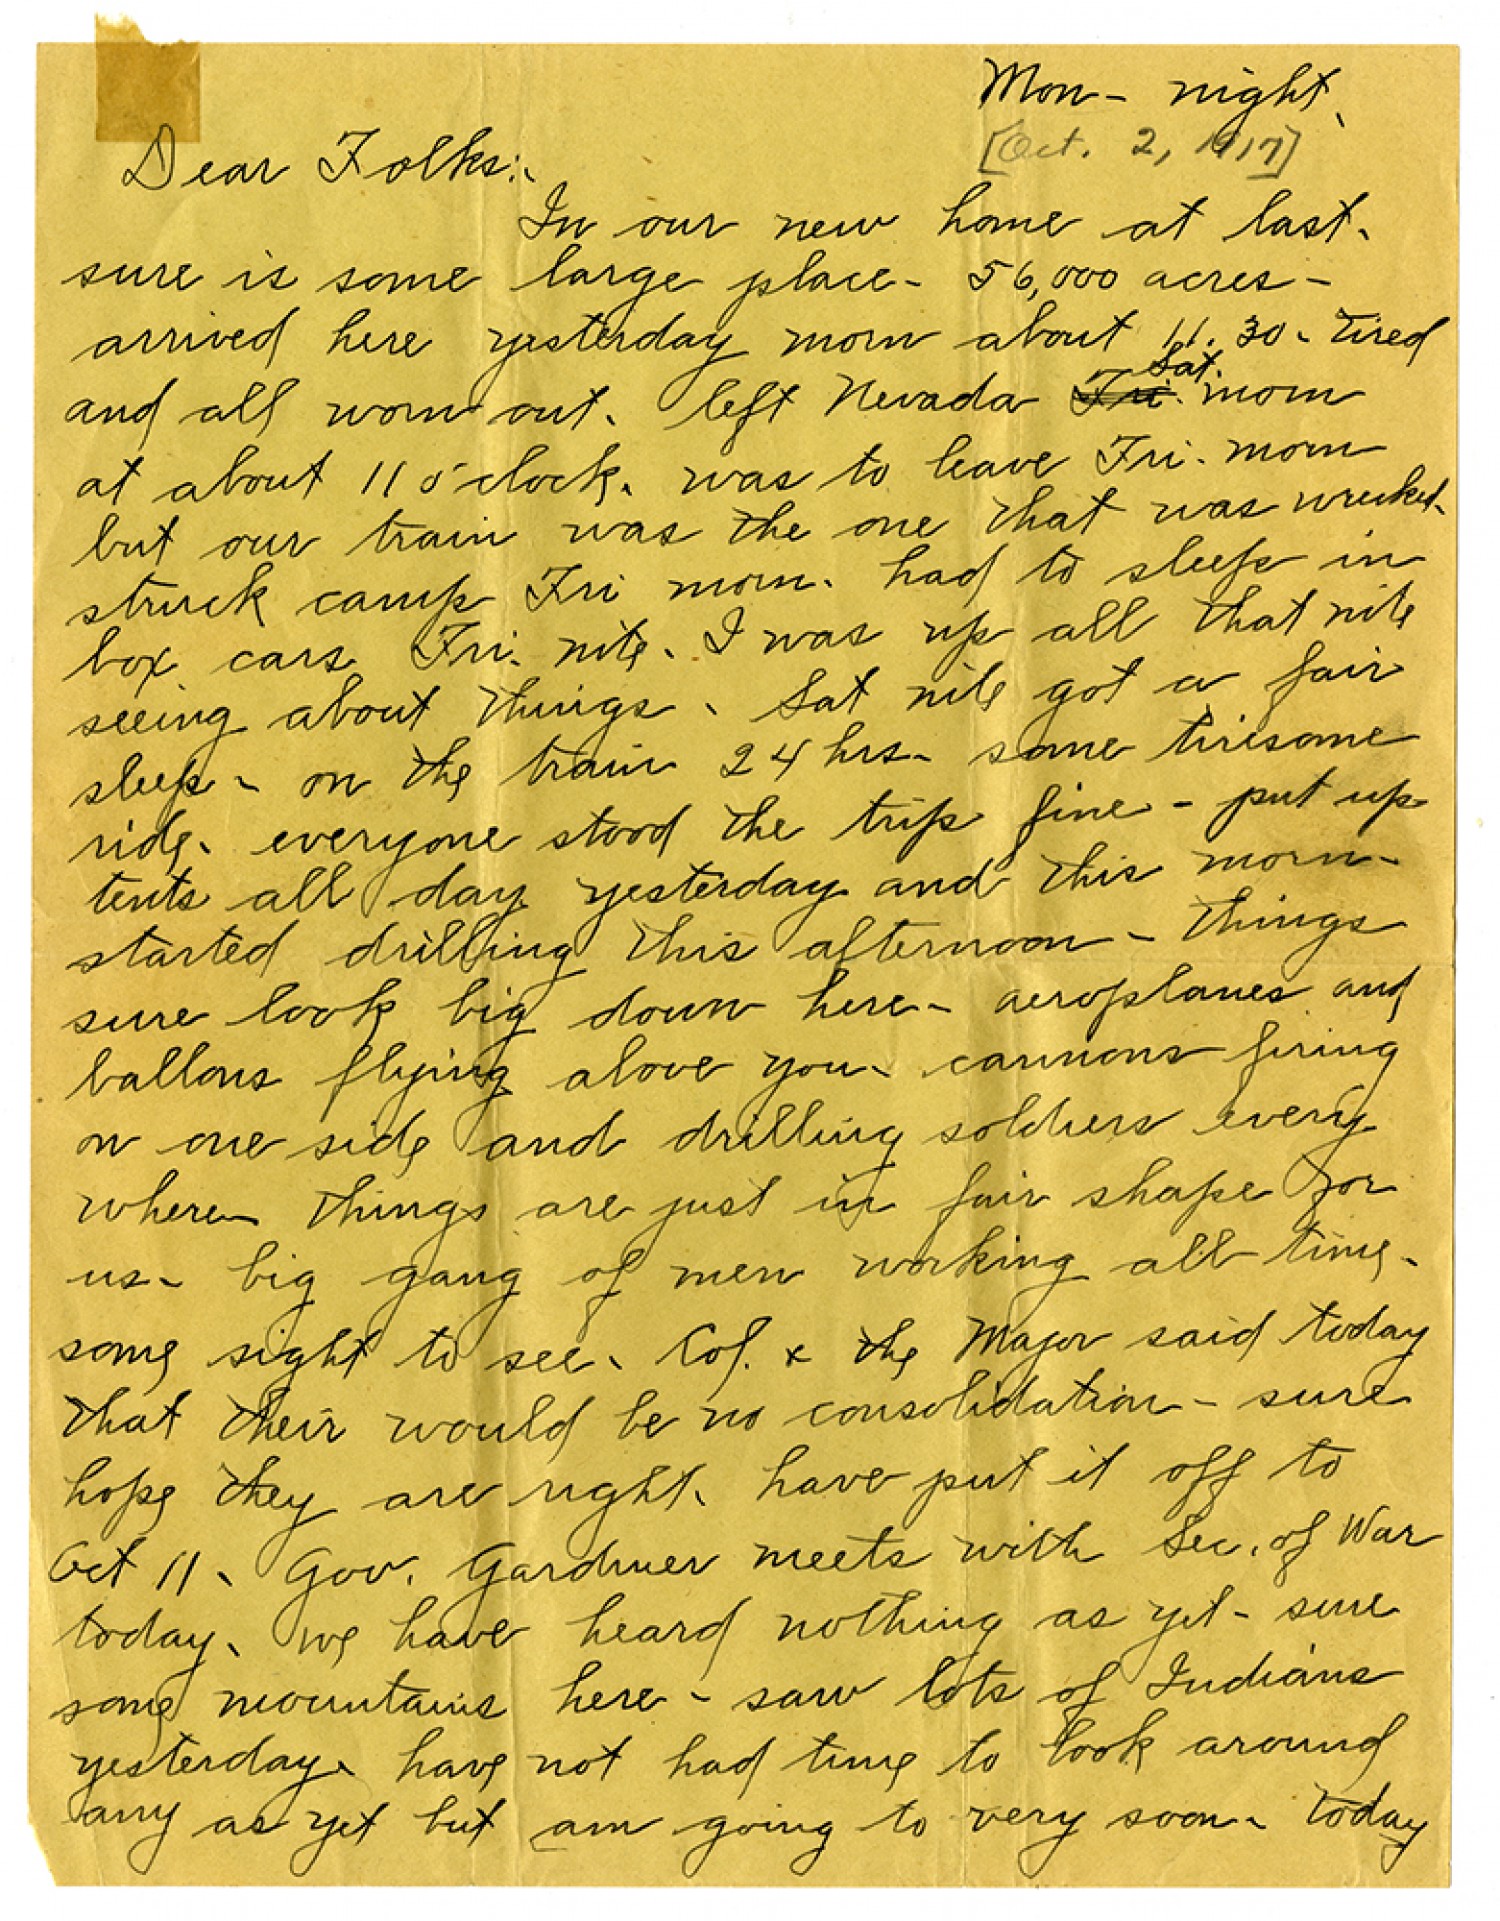 Mon- night.
[Oct. 2, 1917]
Dear Folks:-
In our new home at last.
sure is some large place- 56,000 acres-
arrived here yesterday morn about 11.30- tired
and all worn out. left Nevada Fri. Sat. morn
at about 11 o'clock. was to leave Fri. morn
but our train was the one that was wrecked-
struck camp Fri morn. had to sleep in
box cars Fri. nite. I was up all that nite
seeing about things. Sat nite got a fair
sleep- on the train 24 hrs- some tiresome
ride. everyone stood the trip fine- put up
tents all day yesterday and this morn-
started drilling this afternoon- things
sure look big down here- aeroplanes and
ballons flying above you- cannons firing
on one side and drilling soldiers every
where- things are just in fair shape for
us- big gang of men working all time-
some sight to see. Col. & the Major said today
that their would be no consolidation- sure
hope they are right. have put it off to
Oct 11. Gov. Gardner meets with Sec. of War
today. we have heard nothing as yet- sure
some mountains here- saw lots of Indians
yesterday. have not had time to look around
any as yet but am going to very soon- today